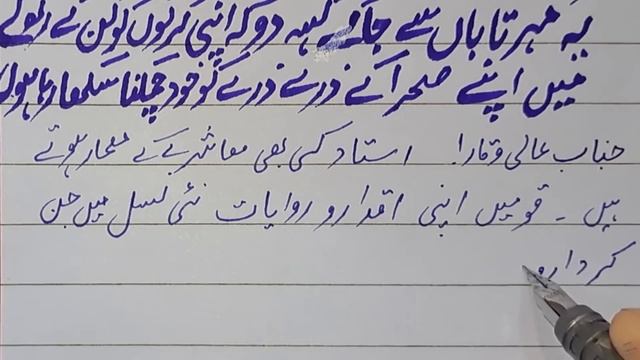 یہ مہر تاباں سے جا کے کہہ دو کہ اپنی کرنوں کو گن کے رکھ لے
میں اپنے صحرا کے ذرے ذرے کو خود چمکنا سکھا رہا ہوں
جناب عالی وقار! استاد کسی بھی معاشرے کے معمار ہوتے
ہیں ۔ قومیں اپنی اقدار و روایات نئی نسل میں جن
کردارو